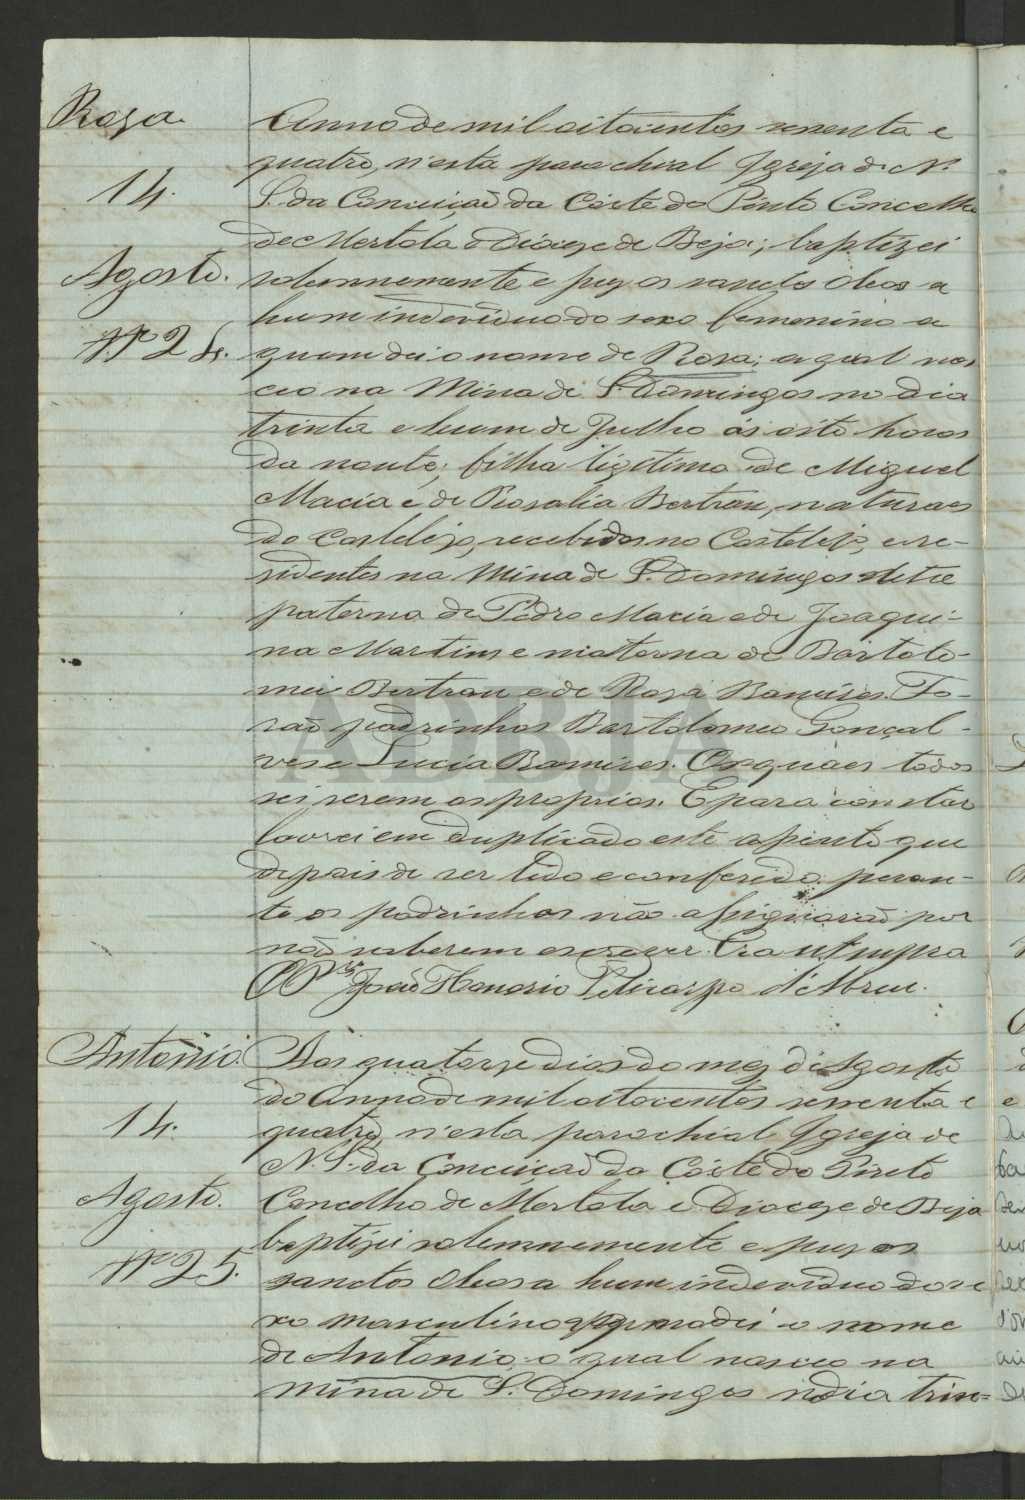 Roza.
14.
Agosto.
Nº 24.
Anno de mil oitocentos sessenta e
quatro, n'esta parochial Igreja de N.
S. da Conceição da Córte do Pinto Concelho
de Mertola e Diocese de Beja; baptizei
solemnemente e puz os sanctos oleos a
hum individuo do sexo femenino a
quem dei o nome de Rosa; a qual nas
ceo na Mina de S. Domingos no dia
trinta e hum de Julho ás oito horas
da noute; filha ligitima de Miguel
Macia e de Rosalia Bertrau, naturaes
do Castelejo, recebidos no Castelejo, e re-
sidentes na Mina de S. Domingos neta
paterna de Pedro Macia e de Joaqui-
na Martins e materna de Bartolo-
meu Bertrau e de Rosa Ramires. Fo-
rão padrinhos Bartolomeo Gonçal-
ves e Lucia Ramires. Os quaes todos
sei serem os proprios. E para constar
lavrei em duplicado este assento que
depois de ser lido e conferido peran-
te os padrinhos não assignarão por
não saberem escrever. Era ut supra
O P.or João Honorio Policarpo d'Abreu.
Antonio.
14.
Agosto.
Nº 25.
Aos quatorze dias do mez de Agosto
do Anno de mil oitocentos sessenta e
quatro, n'esta parochial Igreja de
N. S. da Conceição da Córte do Pinto
Concelho de Mertola e Diocese de Beja
baptizei solemnemente e puz os
sanctos Oleos a hum individuo do se
xo masculino a quem dei o nome
de Antonio, o qual nasceo na
Mina de S. Domingos no dia trin-
ADBJA